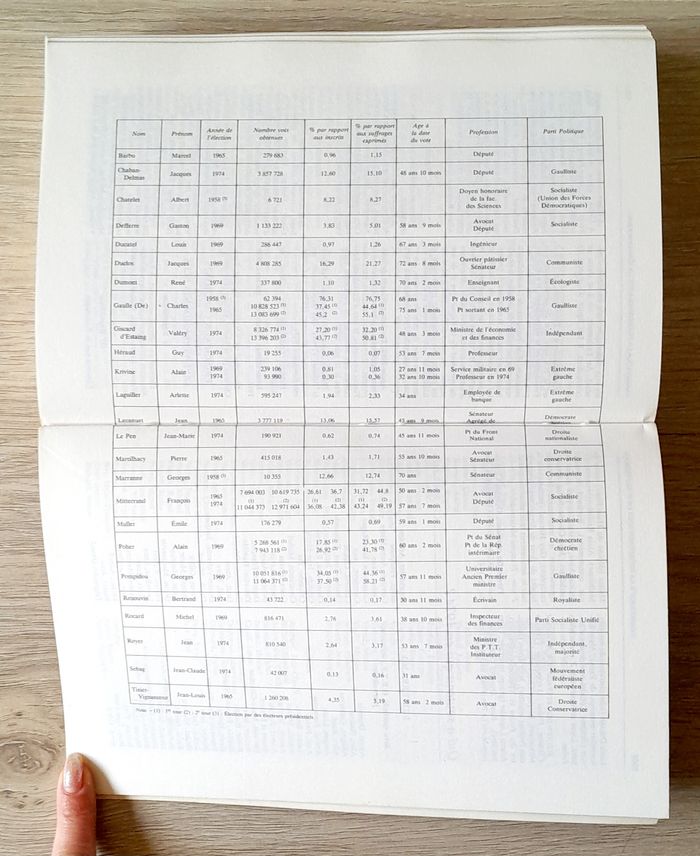 Nom Prénom Année de l'élection Nombre voix obtenues % par rapport aux inscrits % par rapport aux suffrages exprimés Age à la date du vote Profession Parti Politique
Barbu Marcel 1965 279 683 0,96 1,15 Député
Chaban-Delmas Jacques 1974 3 857 728 12,60 15,10 48 ans 10 mois Député Gaulliste
Chatelet Albert 1958 (3) 6 721 8,22 8,27 Doyen honoraire de la fac. des Sciences Socialiste (Union des Forces Démocratiques)
Defferre Gaston 1969 1 133 222 3,83 5,01 58 ans 9 mois Avocat Député Socialiste
Ducatel Louis 1969 286 447 0,97 1,26 67 ans 3 mois Ingénieur
Duclos Jacques 1969 4 808 285 16,29 21,27 72 ans 8 mois Ouvrier pâtissier Sénateur Communiste
Dumont René 1974 337 800 1,10 1,32 70 ans 2 mois Enseignant Écologiste
Gaulle (De) Charles 1958 (3) 62 394 76,31 76,75 68 ans Pt du Conseil en 1958 Gaulliste
1965 10 828 523 (1) 37,45 (1) 44,64 (1) 75 ans 1 mois Pt sortant en 1965
13 083 699 (2) 45,2 (2) 55,1 (2)
Giscard d'Estaing Valéry 1974 8 326 774 (1) 27,20 (1) 32,20 (1) 48 ans 3 mois Ministre de l'économie et des finances Indépendant
13 396 203 (2) 43,77 (2) 50,81 (2)
Héraud Guy 1974 19 255 0,06 0,07 53 ans 7 mois Professeur
Krivine Alain 1969 239 106 0,81 1,05 27 ans 11 mois Service militaire en 69 Extrême gauche
1974 93 990 0,30 0,36 32 ans 10 mois Professeur en 1974
Laguiller Arlette 1974 595 247 1,94 2,33 34 ans Employée de banque Extrême gauche
Lecanuet Jean 3 777 119 13,06 15,57 45 ans 9 mois Sénateur Agrégé de Démocrate
Le Pen Jean-Marie 1974 190 921 0,62 0,74 45 ans 11 mois Pt du Front National Droite nationaliste
Marcilhacy Pierre 1965 415 018 1,43 1,71 55 ans 10 mois Avocat Sénateur Droite conservatrice
Marranne Georges 1958 (3) 10 355 12,66 12,74 70 ans Sénateur Communiste
Mitterrand François 1965 7 694 003 10 619 735 26,61 36,7 31,72 44,8 50 ans 2 mois Avocat Député Socialiste
(1) (2) (1) (2) (1) (2)
1974 11 044 373 12 971 604 36,08 42,38 43,24 49,19 57 ans 7 mois
Muller Émile 1974 176 279 0,57 0,69 59 ans 1 mois Député Socialiste
Poher Alain 1969 5 268 561 (1) 17,85 (1) 23,30 (1) 60 ans 2 mois Pt du Sénat Pt de la Rép. intérimaire Démocrate chrétien
7 943 118 (2) 26,92 (2) 41,78 (2)
Pompidou Georges 1969 10 051 816 (1) 34,05 (1) 44,36 (1) 57 ans 11 mois Universitaire Ancien Premier ministre Gaulliste
11 064 371 (2) 37,50 (2) 58,21 (2)
Renouvin Bertrand 1974 43 722 0,14 0,17 30 ans 11 mois Écrivain Royaliste
Rocard Michel 1969 816 471 2,76 3,61 38 ans 10 mois Inspecteur des finances Parti Socialiste Unifié
Royer Jean 1974 810 540 2,64 3,17 53 ans 7 mois Ministre des P.T.T. Instituteur Indépendant, majorité
Sebag Jean-Claude 1974 42 007 0,13 0,16 31 ans Avocat Mouvement fédéraliste européen
Tixier-Vignancour Jean-Louis 1965 1 260 208 4,35 5,19 58 ans 2 mois Avocat Droite Conservatrice
Nota. – (1) : 1er tour (2) : 2e tour (3) : Élection par des électeurs présidentiels